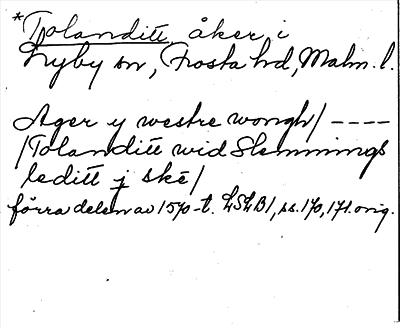 *Tolanditt, åker i
Lyby sn, Frosta hd, Malm. l.
Ager y westre wongh/ ----
/Tolanditt wid Slemmings
leditt j skē/
förra delen av 1570-t. LSLB1, ss. 170, 171. orig.